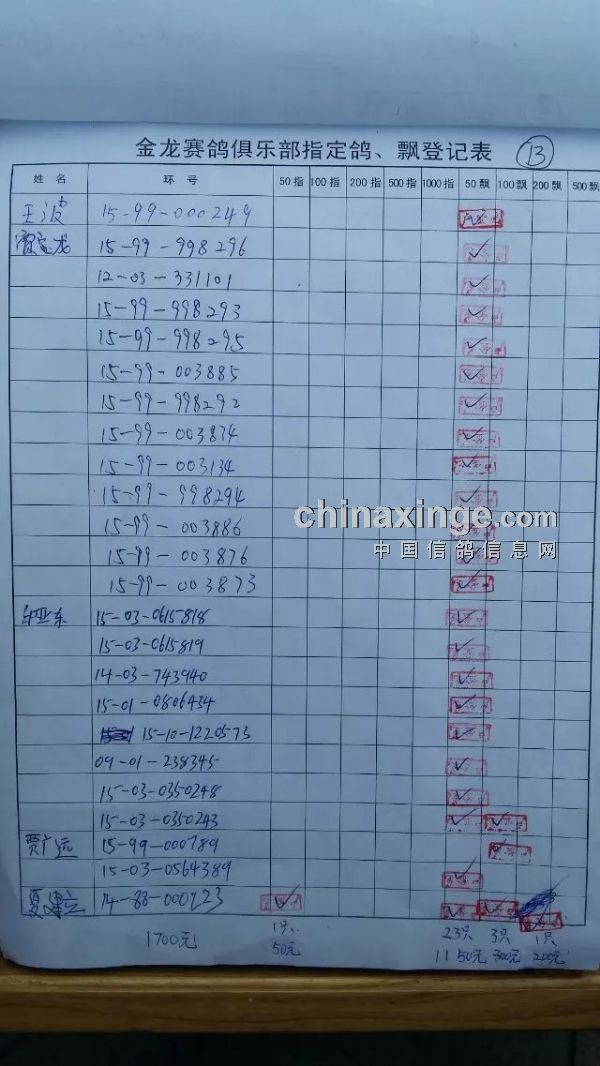 金龙赛鸽俱乐部指定鸽、飘登记表 13
姓 名 环 号 50 指 100 指 200 指 500 指 1000 指 50 飘 100 飘 200 飘 500 飘
王波 15-99-000249
15-99-998296
12-03-331101
15-99-998293
15-99-998295
15-99-003885
15-99-998292
15-99-003834
15-99-003134
15-99-998294
15-99-003886
15-99-003876
15-99-003873
chinaxinge.com
中国信鸽信息网
亚东 15-03-0615818
15-03-0615819
14-03-743940
15-01-0806434
15-10-1220573
09-01-238345
15-03-0350248
15-03-0350243
贾广远 15-99-000789
15-03-0564389
夏 14-88-000223
1700元 1只 23只 3只 1只
50元 1150元 300元 200元